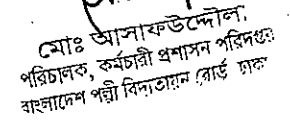 মোঃ আসাফউদ্দৌলা,
পরিচালক, কর্মচারী প্রশাসন পরিদপ্তর
বাংলাদেশ পল্লী বিদ্যুতায়ন বোর্ড ঢাকা